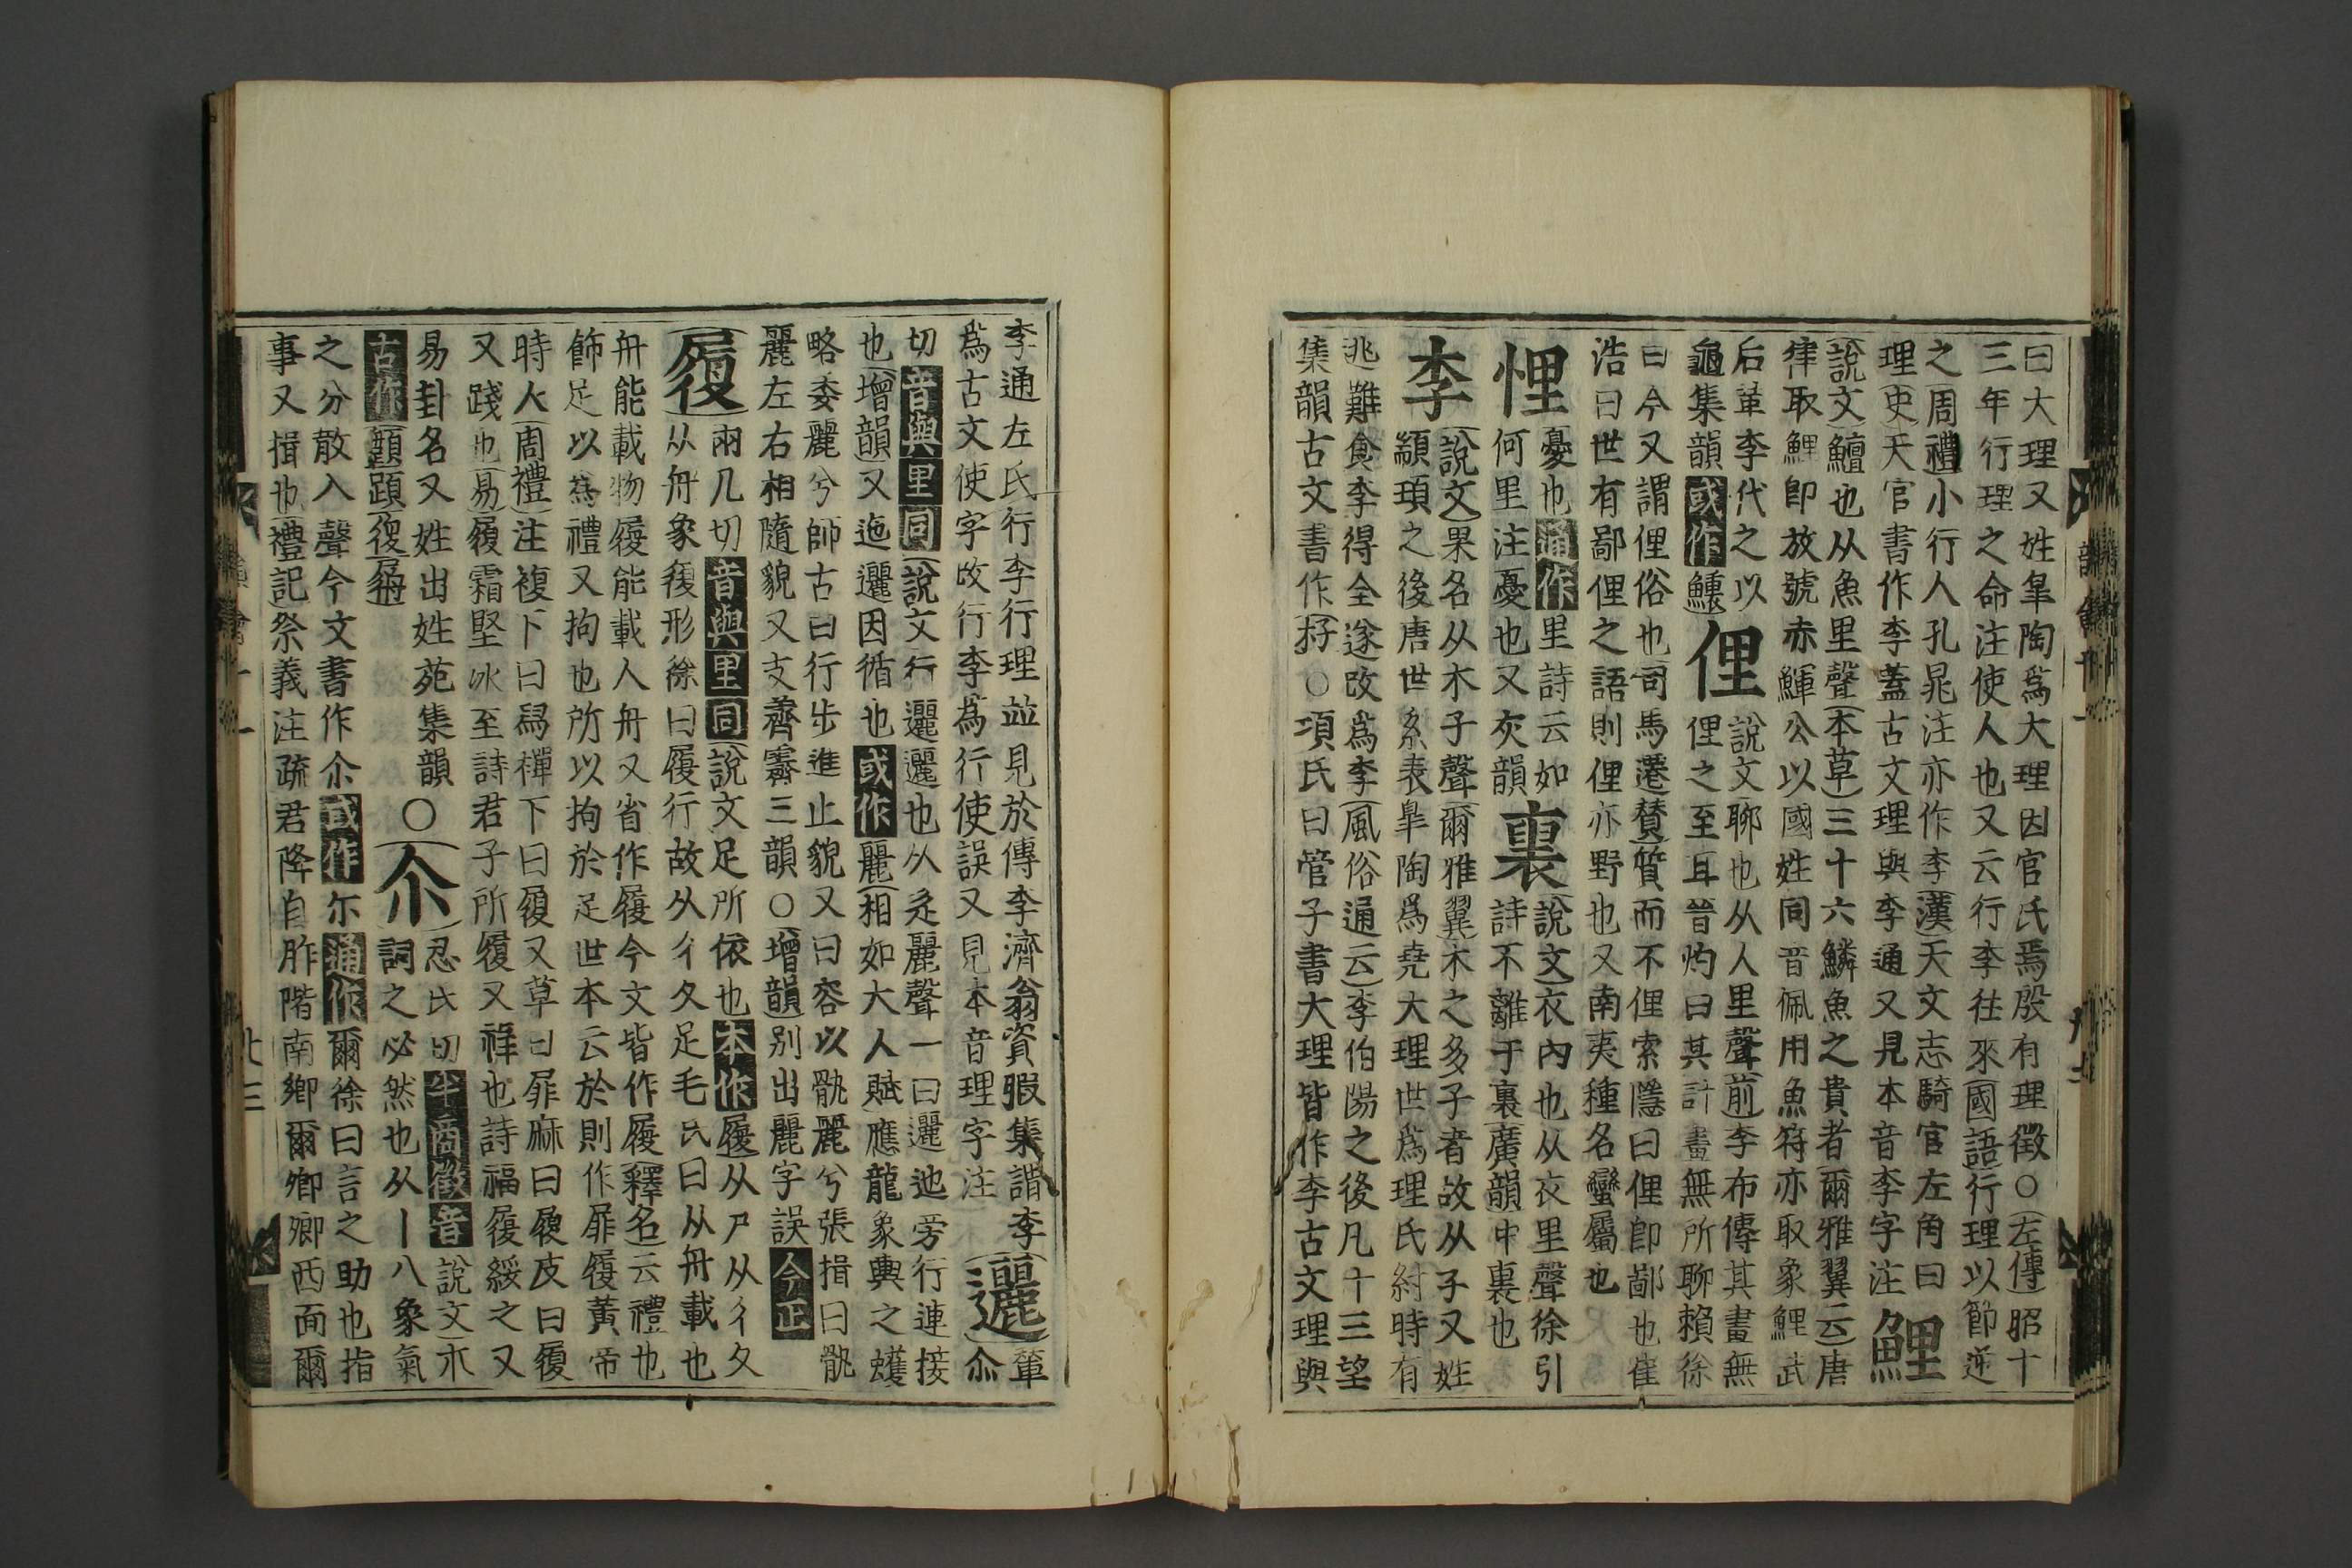 曰大理又姓臯陶爲大理因官氏焉殷有理徵○左傳昭十
三年行理之命注使人也又云行李徃來國語行理以節逆
之周禮小行人孔晁注亦作李漢天文志騎官左角曰
理史天官書作李蓋古文理與李通又見本音李字注
鯉
說文鱣也从魚里聲本草三十六鱗魚之貴者爾雅翼云唐
律取鯉卽放號赤鯶公以國姓同音佩用魚符亦取象鯉武
后革李代之以
龜集韻或作鱱
俚
說文聊也从人里聲前李布傳其畫無
俚之至耳晉灼曰其計畫無所聊賴徐
曰今又謂俚俗也司馬遷贊質而不俚索隱曰俚卽鄙也崔
浩曰世有鄙俚之語則俚亦野也又南夷種名蠻屬也
悝
憂也通作里詩云如
何里注憂也又灰韻
裏
說文衣內也从衣里聲徐引
詩不離于裏廣韻中裏也
李
說文果名从木子聲爾雅翼木之多子者故从子又姓
顓頊之後唐世系表臯陶爲堯大理世爲理氏紂時有
逃難食李得全遂改爲李風俗通云李伯陽之後凡十三望
集韻古文書作杍○項氏曰管子書大理皆作李古文理與
李通左氏行李行理並見於傳李濟翁資暇集謂李
爲古文使字改行李爲行使誤又見本音理字注
邐
輦
尒
切音與里同說文行邐邐也从辵麗聲一曰邐迆旁行連接
也增韻又迤邐因循也或作麗相如大人賦應龍象輿之蠖
略委麗兮師古曰行步進止貌又曰容以骩麗兮張揖曰骩
麗左右相隨貌又支薺霽三韻○增韻別出麗字誤今正
履
兩几切音與里同說文足所依也本作履从尸从彳夊
从舟象履形徐曰履行故从彳夊足毛氏曰从舟載也
舟能載物履能載人舟又省作履今文皆作履釋名云禮也
飾足以爲禮又拘也所以拘於足世本云於則作屝履黃帝
時人周禮注複下曰舄襌下曰履又草曰屝麻曰屨皮曰履
又踐也易履霜堅冰至詩君子所履又祿也詩福履綏之又
易卦名又姓出姓苑集韻
古作
○
尒
忍氏切半商徵音說文亦
詞之必然也从丨八象氣
之分散入聲今文書作尒或作尔通作爾徐曰言之助也指
事又揖也禮記祭義注疏君降自阼階南鄉爾卿卿西面爾